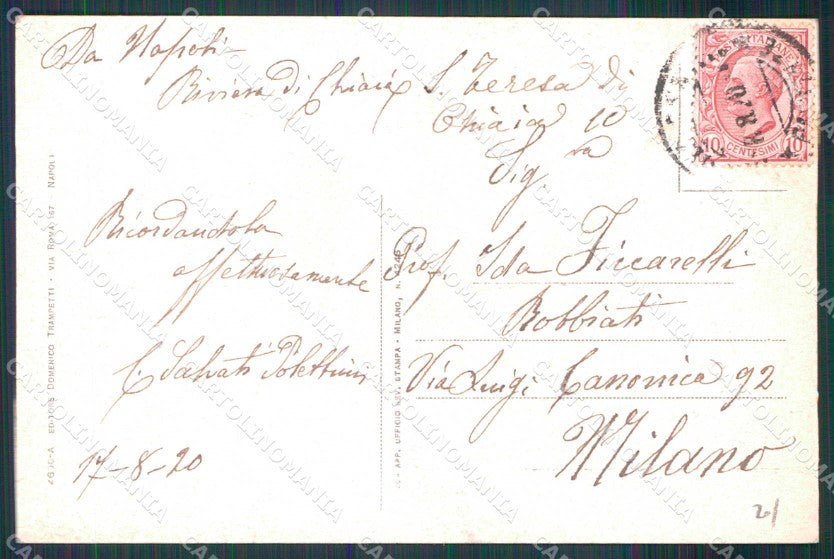 Da Napoli -
Riviera di Chiaia S. Teresa di
Chiaia 10
Sig.ra
Ricordandola
affettuosamente
C. Salvati
17-8-20
Prof. Ida Ficcarelli
Robbiati
Via Luigi Canonica 92
Milano
POSTE ITALIANE
10 CENTESIMI 10
EDITORE DOMENICO TRAMPETTI - VIA ROMA 167 - NAPOLI
APP. UFFICIO REV. STAMPA - MILANO, N.
21
CARTOLINOMANIA